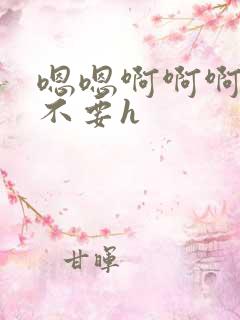 嗯嗯啊啊啊
不要h
甘晖